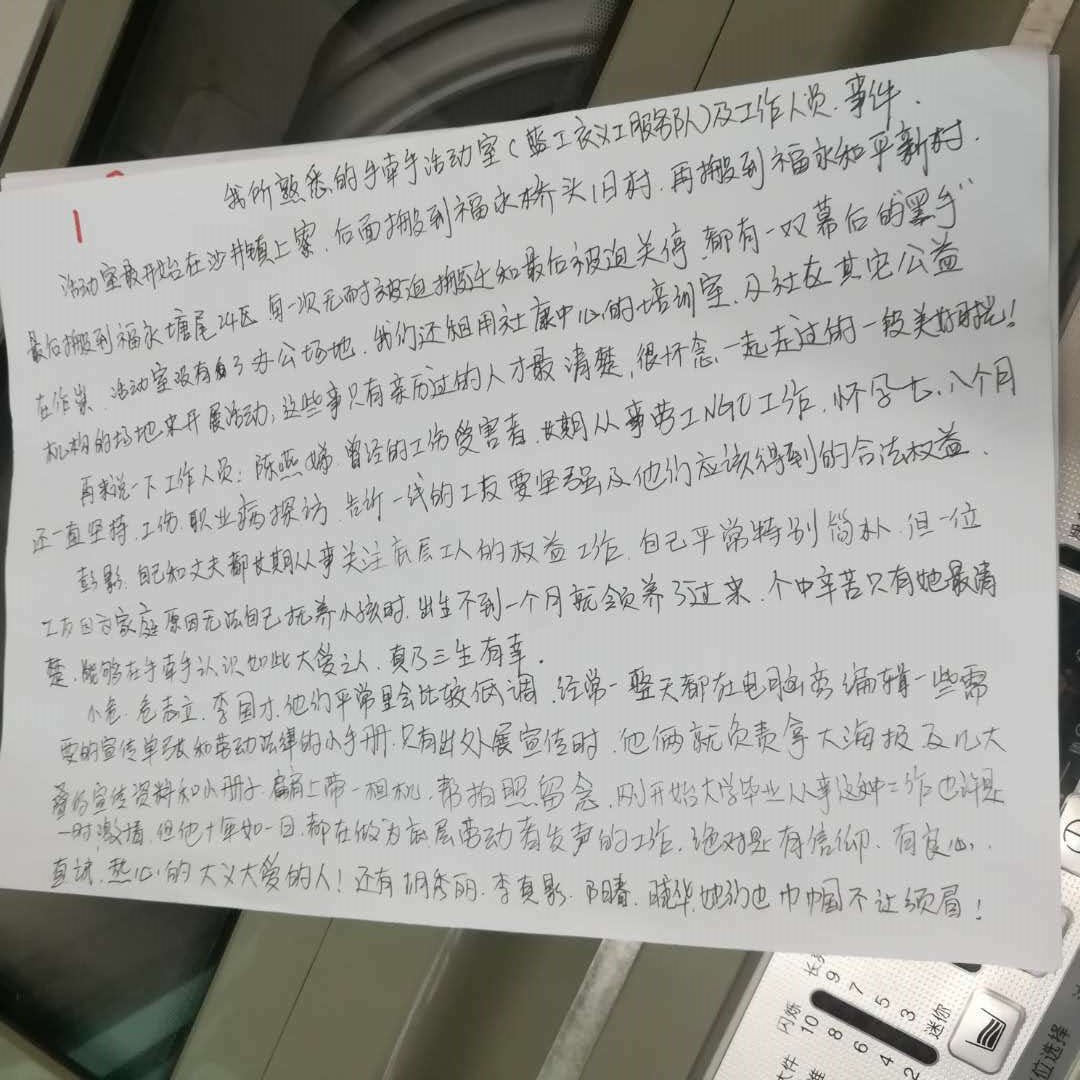 1
我所熟悉的手牵手活动室(蓝工衣义工服务队)及工作人员.事件.
活动室最开始在沙井镇上寮.后面搬到福永桥头旧村.再搬到福永和平新村.
最后搬到福永塘尾24区.每一次无耐被迫搬迁和最后被迫关停.都有一双幕后的"黑手"
在作祟.活动室没有了办公场地.我们还租用社康中心的培训室.及社区其它公益
机构的场地来开展活动,这些事只有亲历过的人才最清楚,很怀念一起走过的一段美好时光!
再来说一下工作人员:陈燕娣.曾经的工伤受害者.长期从事劳工NGO工作.怀孕七、八个月
还一直坚持.工伤.职业病探访.告诉一线的工友要坚强及他们应该得到的合法权益.
彭影.自己和丈夫都长期从事关注底层工人的权益工作.自己平常特别简朴.但一位
工友因为家庭原因无法自己抚养小孩时.出生不到一个月就领养了过来.个中辛苦只有她最清
楚.能够在手牵手认识如此大爱之人.真乃三生有幸.
小危.危志立.李国才.他们平常里会比较低调.经常一整天都在电脑旁编辑一些需
要的宣传单张和劳动法律的小手册.只有出外展宣传时.他俩就负责拿大海报及几大
叠的宣传资料和小册子.肩上带一相机.帮拍照留念.刚开始大学毕业从事这种工作也许是
一时激情.但他十年如一日.都在做为底层劳动者发声的工作.绝对是有信仰.有良心.
真诚.热心的大义大爱的人!还有胡秀丽.李真影.阳春.晓华.她们也巾帼不让须眉!
长
闪烁
10
9
8
7
6
5
4
3
2
迷你
位选择